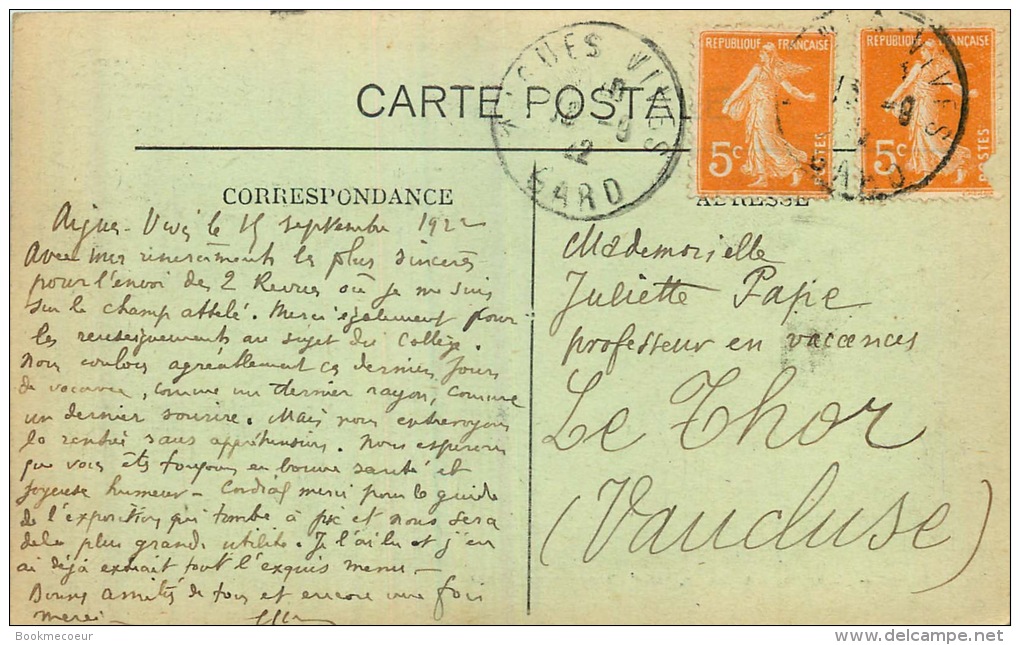 CARTE POSTAL
AIGUES VIVES
15 -9
22
GARD
REPUBLIQUE FRANÇAISE
5c
POSTES
REPUBLIQUE FRANÇAISE
5c
POSTES
VIVES
-9
GARD
CORRESPONDANCE
Aigues-Vives le 15 septembre 1922
Avec mes remerciments les plus sincères
pour l'envoi des 2 Revues où je me suis
sur le champ attelé. Merci également pour
les renseignements au sujet du Collège.
Nous coulons agréablement ces derniers jours
de vacance, comme un dernier rayon, comme
un dernier sourire. Mais nous entrevoyons
la rentrée sans appréhension. Nous espérons
que vous êtes toujours en bonne santé et
joyeuse humeur - Cordial merci pour le guide
de l'exposition qui tombe à pic et nous sera
de la plus grande utilité. Je l'ai lu et j'en
ai déjà extrait tout l'exquis menu -
Bonnes amitiés de tous et encore une fois
merci -
ADRESSE
Mademoiselle
Juliette Pape
professeur en vacances
Le Thor
(Vaucluse)
Bookmecoeur
delcampe.net